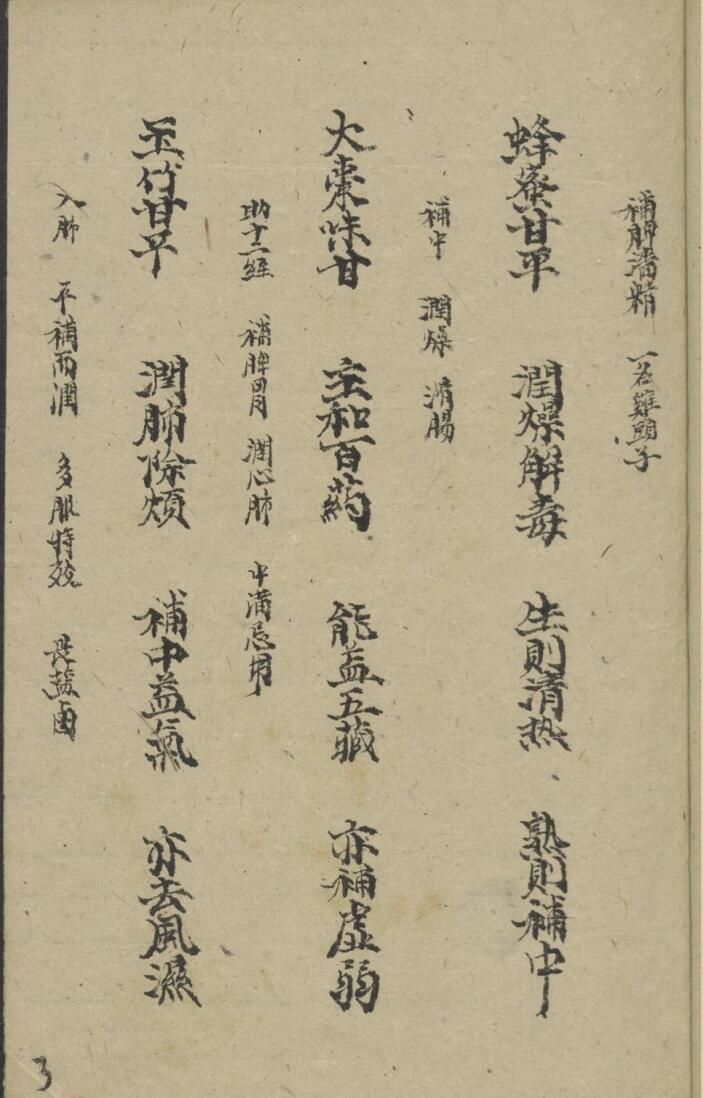 補脾濇精 一名雞頭子
蜂蜜甘平 潤燥解毒 生則清热 熟則補中
補中 潤燥 滑腸
大棗味甘 主和百药 能益五藏 亦補虛弱
助十二經 補脾胃 潤心肺 中滿忌用
玉竹甘平 潤肺除煩 補中益氣 亦去風濕
入肺 平補而潤 多服特效 畏盐卤
3